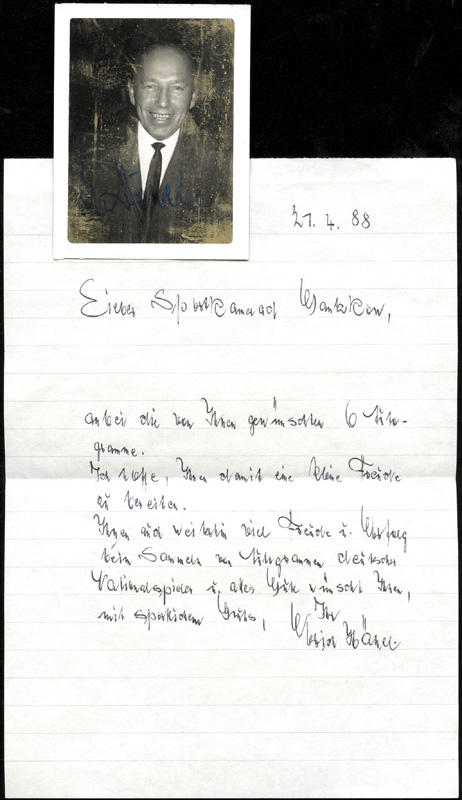 21. 4. 88
Lieber Sportkamerad
anbei die von Ihnen gewünschten 6 Auto-
gramme.
Ich hoffe, Ihnen damit eine kleine Freude
zu bereiten.
Ihnen auch weiterhin viel Freude u. Erfolg
beim Sammeln von Autogrammen deutscher
Nationalspieler u. alles Gute wünscht Ihnen,
mit sportlichem Gruß,
Ihr
Erich Hänel